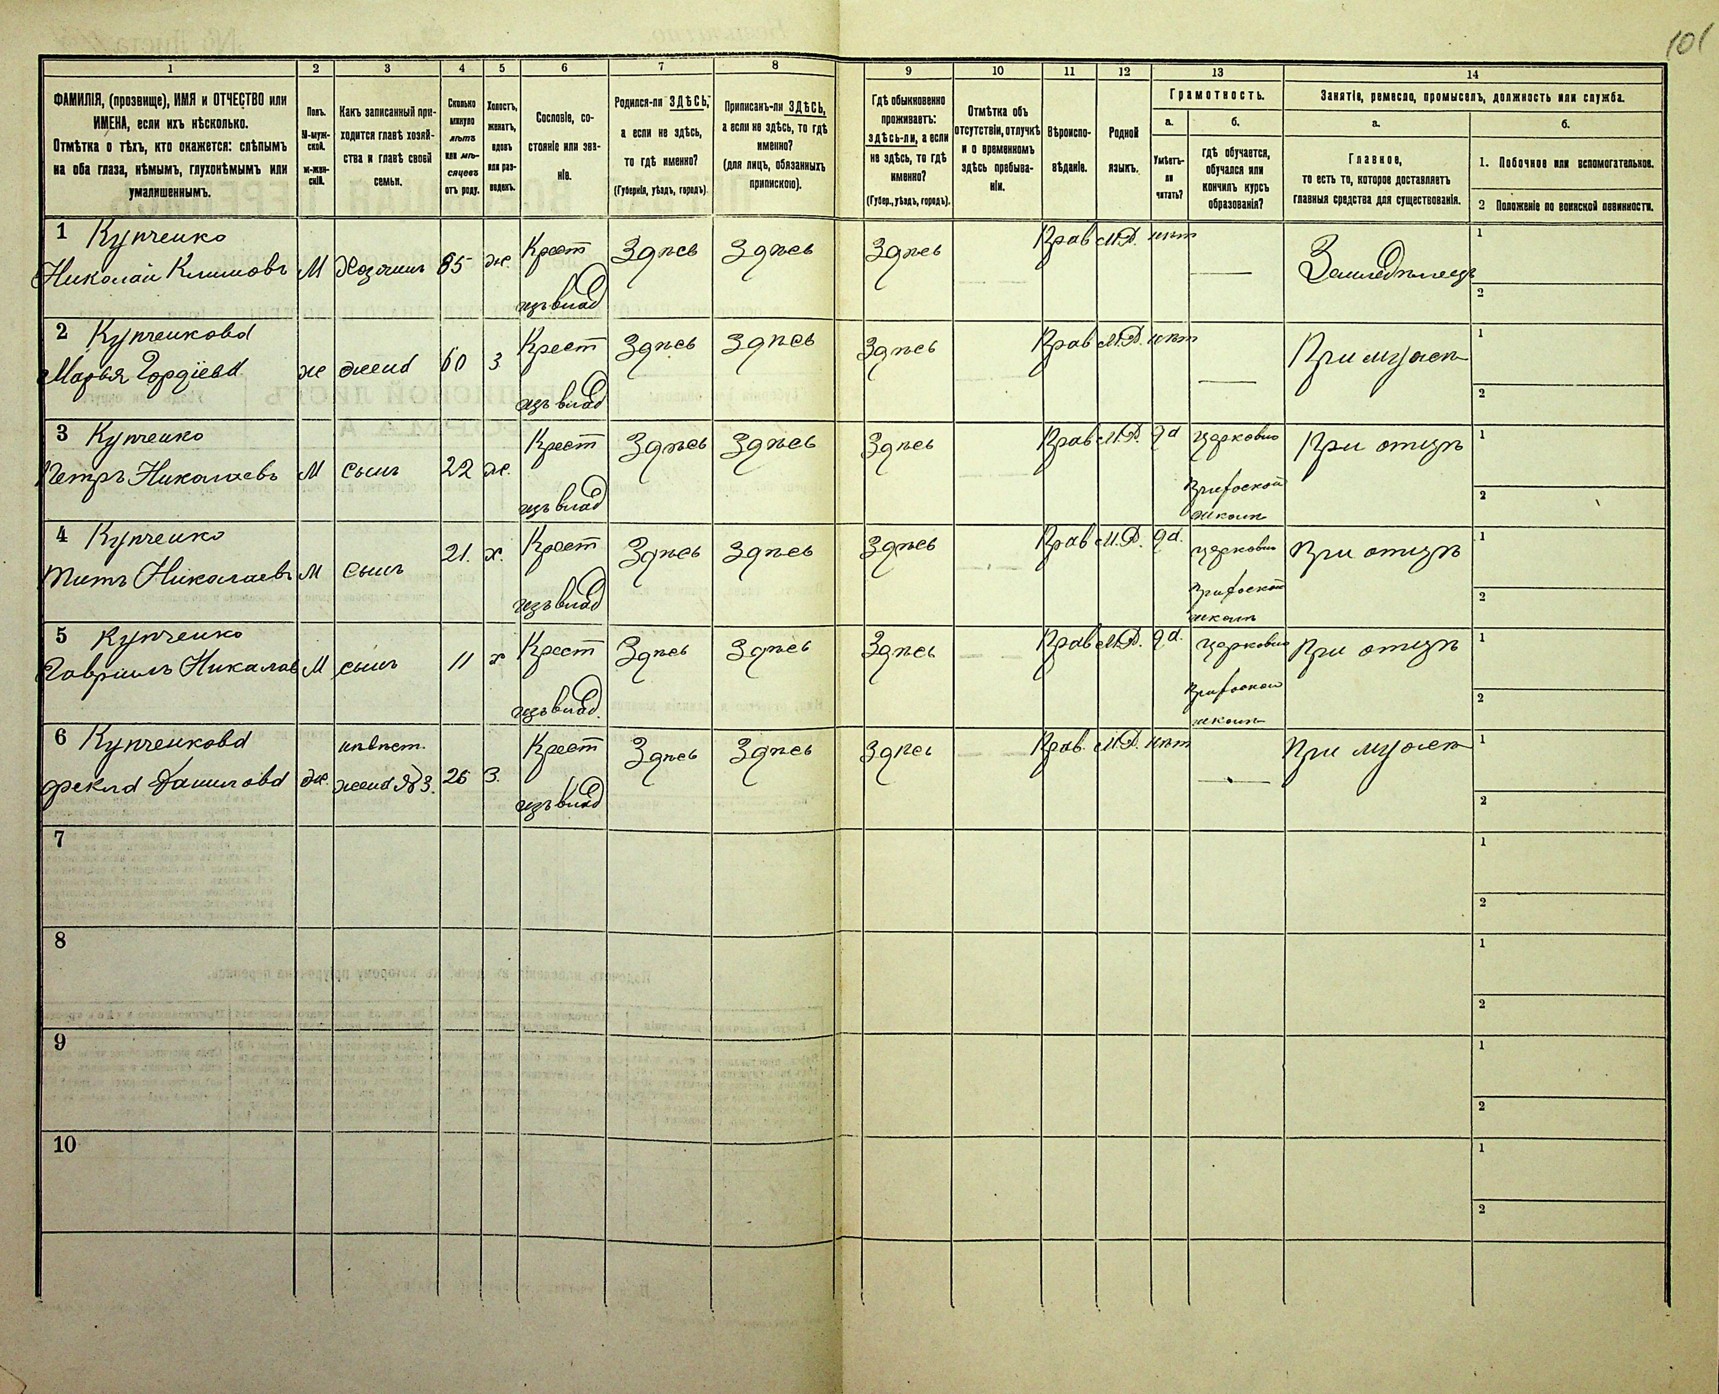 101
1 2 3 4 5 6 7 8 9 10 11 12 13 14
ФАМИЛІЯ, (прозвище), ИМЯ и ОТЧЕСТВО или
ИМЕНА, если ихъ нѣсколько.
Отмѣтка о тѣхъ, кто окажется: слѣпымъ
на оба глаза, нѣмымъ, глухонѣмымъ или
умалишеннымъ.
Полъ.
М-муж-
ской.
ж-жен-
скій.
Какъ записанный при-
ходится главѣ хозяй-
ства и главѣ своей
семьи.
Сколько
минуло
лѣтъ
или мѣ-
сяцевъ
отъ роду.
Холостъ,
женатъ,
вдовъ
или раз-
веденъ.
Сословіе, со-
стояніе или зва-
ніе.
Родился-ли ЗДѢСЬ,
а если не здѣсь,
то гдѣ именно?
(Губернія, уѣздъ, городъ).
Приписанъ-ли ЗДѢСЬ,
а если не здѣсь, то гдѣ
именно?
(для лицъ, обязанныхъ
припискою).
Гдѣ обыкновенно
проживаетъ:
здѣсь-ли, а если
не здѣсь, то гдѣ
именно?
(Губер., уѣздъ, городъ).
Отмѣтка объ
отсутствіи, отлучкѣ
и о временномъ
здѣсь пребыва-
ніи.
Вѣроиспо-
вѣданіе.
Родной
языкъ.
Грамотность.
а.
Умѣетъ-
ли
читать?
б.
гдѣ обучается,
обучался или
кончилъ курсъ
образованія?
Занятіе, ремесло, промыселъ, должность или служба.
а.
Главное,
то есть то, которое доставляетъ
главныя средства для существованія.
б.
1. Побочное или вспомогательное.
2 Положеніе по воинской повинности.
1 Купченко
Николай Климовъ М Хозяинъ 65 ж. Крест Здѣсь Здѣсь Здѣсь Прав М.Р. нѣтъ — Земледѣлецъ 1
изъ влад 2
2 Купченкова
Марья Гордіева ж жена 60 з Крест Здѣсь Здѣсь Здѣсь Прав М.Р. нѣтъ — При мужѣ 1
изъ влад 2
3 Купченко
Петръ Николаевъ М сынъ 22 ж. Крест Здѣсь Здѣсь Здѣсь Прав М.Р. да Церковно При отцѣ 1
изъ влад школѣ 2
4 Купченко
Титъ Николаевъ М сынъ 21. х. Крест Здѣсь Здѣсь Здѣсь Прав М.Р. да. церковно При отцѣ 1
изъ влад школѣ 2
5 Купченко
Гавріилъ Николаев М сынъ 11 х Крест Здѣсь Здѣсь Здѣсь Прав М.Р. да. церковно При отцѣ 1
изъ влад. школѣ 2
6 Купченкова
Фекла Данилова ж. невѣст. жена №3. 26 з. Крест Здѣсь Здѣсь Здѣсь Прав. М.Р. нѣтъ — При мужѣ 1
изъ влад 2
7 1
2
8 1
2
9 1
2
10 1
2